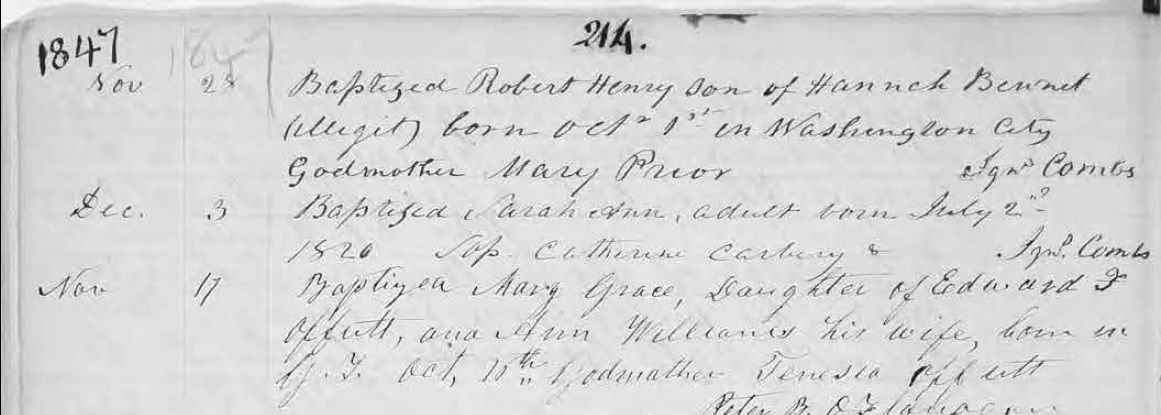 214.
1847
Nov 28 Baptized Robert Henry son of Hannah Bennet
(illegit) born Octr 1st in Washington City
Godmother Mary Prior Igns Combs
Dec. 3 Baptized Sarah Ann, adult born July 2nd
1826 Sop. Catherine Carbery & Igns. Combs
Nov 17 Baptized Mary Grace, Daughter of Edward F
Offutt, and Ann Williams his wife, born in
G.T. Oct, 10th Godmother Teresia Offutt
Peter B. O'Flanagan